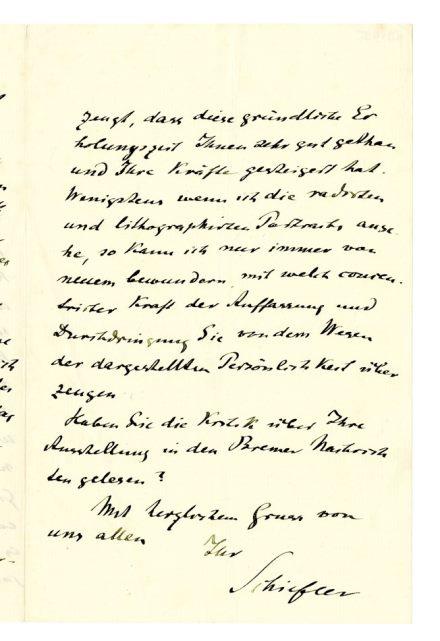 zeugt, dass diese gründliche Er
holungszeit Ihnen sehr gut gethan
und Ihre Kräfte gesteigert hat.
Wenigstens wenn ich die radirten
und lithographirten Portraits anse
he, so kann ich nur immer von
neuem bewundern, mit welch concen
trirter Kraft der Auffassung und
Durchdringung Sie von dem Wesen
der dargestellten Persönlichkeit über
zeugen
Haben Sie die Kritik über Ihre
Ausstellung in den Bremer Nachrich
ten gelesen?
Mit herzlichem Gruss von
uns allen Ihr
Schiefler